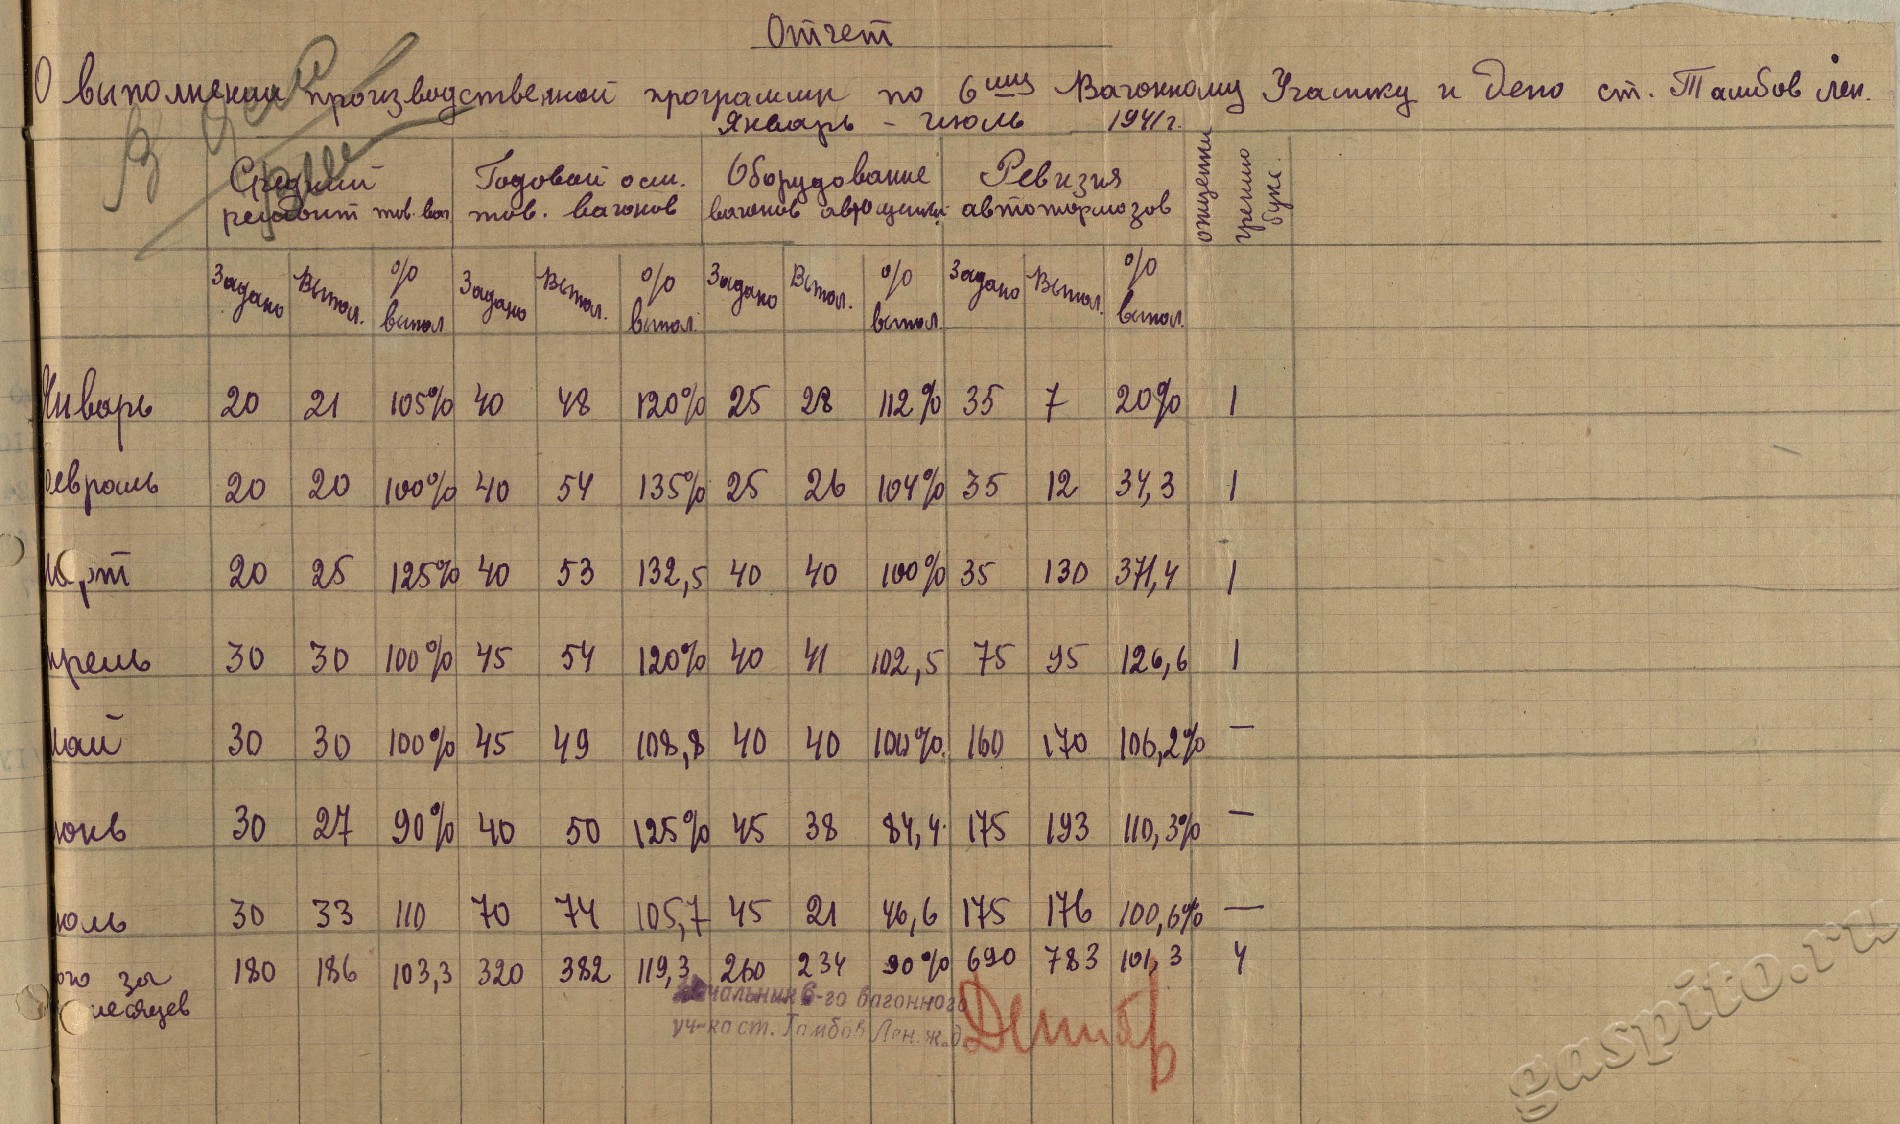 Отчет
О выполнении производственной программы по 6му Вагонному Участку и Депо ст. Тамбов Лен.
Январь - июль 1941 г.
Средний ремонт тов. ваг Годовой осм. тов. вагонов Оборудование вагонов Ревизия автотормозов трению букс.
Задано Выпол. % выпол Задано Выпол. % выпол. Задано Выпол. % выпол. Задано Выпол. % выпол.
Январь 20 21 105% 40 48 120% 25 28 112% 35 7 20% 1
евраль 20 20 100% 40 54 135% 25 26 104% 35 12 34,3 1
Март 20 25 125% 40 53 132,5 40 40 100% 35 130 371,4 1
прель 30 30 100% 45 54 120% 40 41 102,5 75 95 126,6 1
май 30 30 100% 45 49 108,8 40 40 100% 160 170 106,2% —
юнь 30 27 90% 40 50 125% 45 38 84,4 175 193 110,3% —
юль 30 33 110 70 74 105,7 45 21 46,6 175 176 100,6% —
ого за месяцев 180 186 103,3 320 382 119,3 260 234 90% 690 783 101,3 4
Начальник 6-го вагонного
уч-ка ст. Тамбов Лен. ж.д.
gaspito.ru